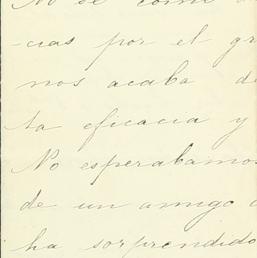 No sé como
-cias por el gr
nos acaba de
ta eficacia y
No esperabamos
de un amigo
ha sorprendido